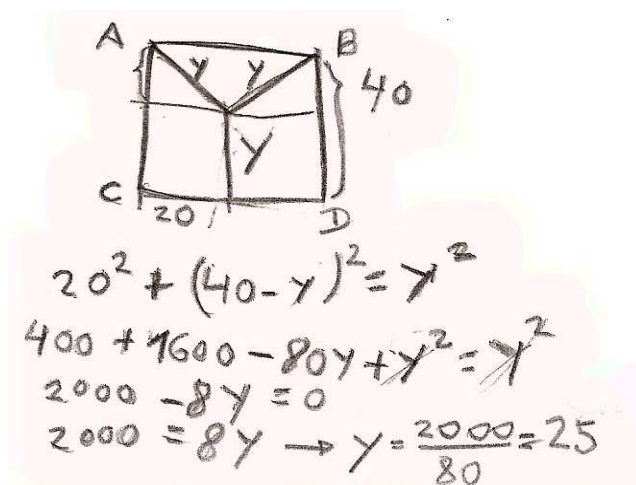 A B
y y 40
y
C 20 D
20² + (40-y)² = y²
400 + 1600 - 80y + y² = y²
2000 - 8y = 0
2000 = 8y → y = 2000/80 = 25